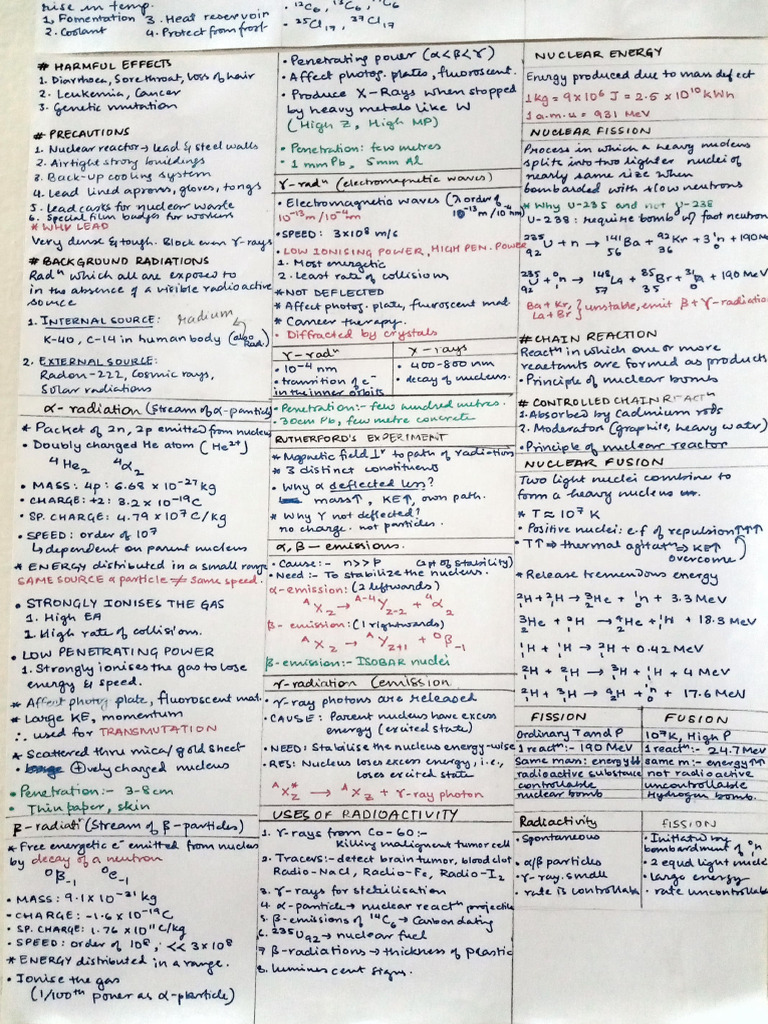 rise in temp.
1. Fomentation 3. Heat reservoir
2. Coolant 4. Protect from frost
# HARMFUL EFFECTS
1. Diarrhoea, Sore throat, loss of hair
2. Leukemia, Cancer
3. Genetic mutation
# PRECAUTIONS
1. Nuclear reactor → lead & steel walls
2. Airtight strong buildings
3. Back-up cooling system
4. Lead lined aprons, gloves, tongs
5. Lead casks for nuclear waste
6. Special film badges for workers
* WHY LEAD
Very dense & tough. Block even γ-rays
# BACKGROUND RADIATIONS
Radⁿ which all are exposed to
in the absence of a visible radioactive
source
1. INTERNAL SOURCE: radium
K-40, C-14 in human body (also Rad.)
2. EXTERNAL SOURCE:
Radon-222, Cosmic rays,
Solar radiations
α-radiation (stream of α-particles)
* Packet of 2n, 2p emitted from nucleus
• Doubly charged He atom (He²⁺)
⁴He₂ ⁴α₂
• MASS: 4p: 6.68 x 10⁻²⁷ kg
• CHARGE: +2: 3.2 x 10⁻¹⁹ C
• SP. CHARGE: 4.79 x 10⁷ C/kg
• SPEED: order of 10⁷
↳ dependent on parent nucleus
* ENERGY distributed in a small range
SAME SOURCE α particle ≠ same speed.
• STRONGLY IONISES THE GAS
1. High EA
1. High rate of collisions.
• LOW PENETRATING POWER
1. Strongly ionises the gas to lose
energy & speed.
* Affect photog plate, fluorescent mat.
* Large KE, momentum
∴ used for TRANSMUTATION
* Scattered thru mica/gold sheet
• ⊕vely charged nucleus
• Penetration:- 3-8cm
• Thin paper, skin
β-radiatⁿ (Stream of β-particles)
* Free energetic e⁻ emitted from nucleus
by decay of a neutron
⁰β₋₁ ⁰e₋₁
• MASS: 9.1 x 10⁻³¹ kg
- CHARGE: -1.6 x 10⁻¹⁹ C
• SP. CHARGE: 1.76 x 10¹¹ C/kg
• SPEED: order of 10⁸, << 3x10⁸
* ENERGY distributed in a range.
• Ionise the gas
(1/100ᵗʰ power as α-particle)
¹²C₆, ¹³C₆, ¹⁴C₆
• ³⁵Cl₁₇, ³⁷Cl₁₇
• Penetrating power (α<β<γ)
• Affect photog. plates, fluoroscent.
• Produce X-Rays when stopped
by heavy metals like W
(High Z, High MP)
• Penetration: few metres
• 1 mm Pb, 5mm Al
γ-radⁿ (electromagnetic waves)
• Electromagnetic waves (λ order of
10⁻¹³ m/10⁻⁴ nm 10⁻¹³ m/10⁻⁴ nm)
• SPEED: 3x10⁸ m/s
• LOW IONISING POWER, HIGH PEN. POWER
1. Most energetic
2. Least rate of collisions
* NOT DEFLECTED
* Affect photog. plate, fluoroscent mat.
* Cancer therapy.
• Diffracted by crystals
γ-radⁿ X-rays
• 10⁻⁴ nm • 400-800 nm
• transition of e⁻ • decay of nucleus.
in the inner orbits
• Penetration:- few hundred metres.
• 30cm Pb, few metre concrete
RUTHERFORD'S EXPERIMENT
* Magnetic field ⊥ʳ to path of radiation
* 3 distinct constituents
• Why α deflected less?
mass↑, KE↑, own path.
* Why γ not deflected?
no charge. not particles.
α, β - emissions.
• Cause:- n>>p (apt of stability)
• Need:- To stabilize the nucleus.
α-emission: (2 leftwards)
ᴬX_Z → ᴬ⁻⁴Y_Z-2 + ⁴α₂
β-emission: (1 rightwards)
ᴬX_Z → ᴬY_Z+1 + ⁰β₋₁
β-emission:- ISOBAR nuclei
γ-radiation (emission
• γ-ray photons are released
• CAUSE: Parent nucleus have excess
energy (excited state)
• NEED: Stabilise the nucleus energy-wise
• RES: Nucleus loses excess energy, i.e.,
loses excited state
ᴬX_Z* → ᴬX_Z + γ-ray photon
USES OF RADIOACTIVITY
1. γ-rays from Co-60:-
Killing malignent tumor cell
2. Tracers:- detect brain tumor, blood clot
Radio-NaCl, Radio-Fe, Radio-I₂
3. γ-rays for sterilisation
4. α-particle → nuclear reactⁿ projectile
5. β-emissions of ¹⁴C₆ → Carbon dating
6. ²³⁵U₉₂ → nuclear fuel
7 β-radiations → thickness of plastic
8. luminescent signs.
NUCLEAR ENERGY
Energy produced due to mass defect
1kg = 9x10¹⁶ J = 2.5 x 10¹⁰ kWh
1 a.m.u = 931 MeV
NUCLEAR FISSION
Process in which a heavy nucleus
splits into two lighter nuclei of
nearly same size when
bombarded with slow neutrons
* Why U-235 and not U-238
U-238: require bomb w/ fast neutron
²³⁵₉₂U + n → ¹⁴¹₅₆Ba + ⁹²₃₆Kr + 3¹n + 190M
²³⁵₉₂U + ¹₀n → ¹⁴⁸₅₇La + ⁸⁵₃₅Br + 3¹₀n + 190 MeV
Ba+Kr, La+Br } unstable, emit β+γ-radiation
# CHAIN REACTION
Reactⁿ in which one or more
reactants are formed as products
• Principle of nuclear bombs
# CONTROLLED CHAIN REACTⁿ
1. Absorbed by Cadmium rods
2. Moderator (graphite, heavy water)
• Principle of nuclear reactor
NUCLEAR FUSION
Two light nuclei combine to
form a heavy nucleus
* T ≈ 10⁷ K
• Positive nuclei: e.f of repulsion↑↑↑
• T↑ ⇒ thermal agitatⁿ ⇒ KE↑
overcome
* Release tremendous energy
²₁H + ²₁H → ³₂He + ¹₀n + 3.3 MeV
³₂He + ²₁H → ⁴₂He + ¹₁H + 18.3 MeV
¹₁H + ¹₁H → ²₁H + 0.42 MeV
²₁H + ²₁H → ³₁H + ¹₁H + 4 MeV
²₁H + ³₁H → ⁴₂H + ¹₀n + 17.6 MeV
FISSION FUSION
Ordinary T and P 10⁷K, High P
1 reactⁿ:- 190 MeV 1 reactⁿ:- 24.7 MeV
Same mass: energy↓↓ same m:- energy↑↑
radioactive substance not radioactive
controllable uncontrollable
nuclear bomb Hydrogen bomb.
Radioactivity FISSION
• Spontaneous • Initiated by
bombardment of ¹₀n
• α/β particles • 2 equal light nuclei
• γ-ray. small • large energy
• rate is controllable • rate uncontrollable